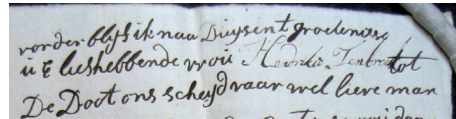 vorder blyf ik naa Duysent groetenisse
u E liefhebbende vrou Hendrik tot
De Doot ons scheyd vaar wel lieve man